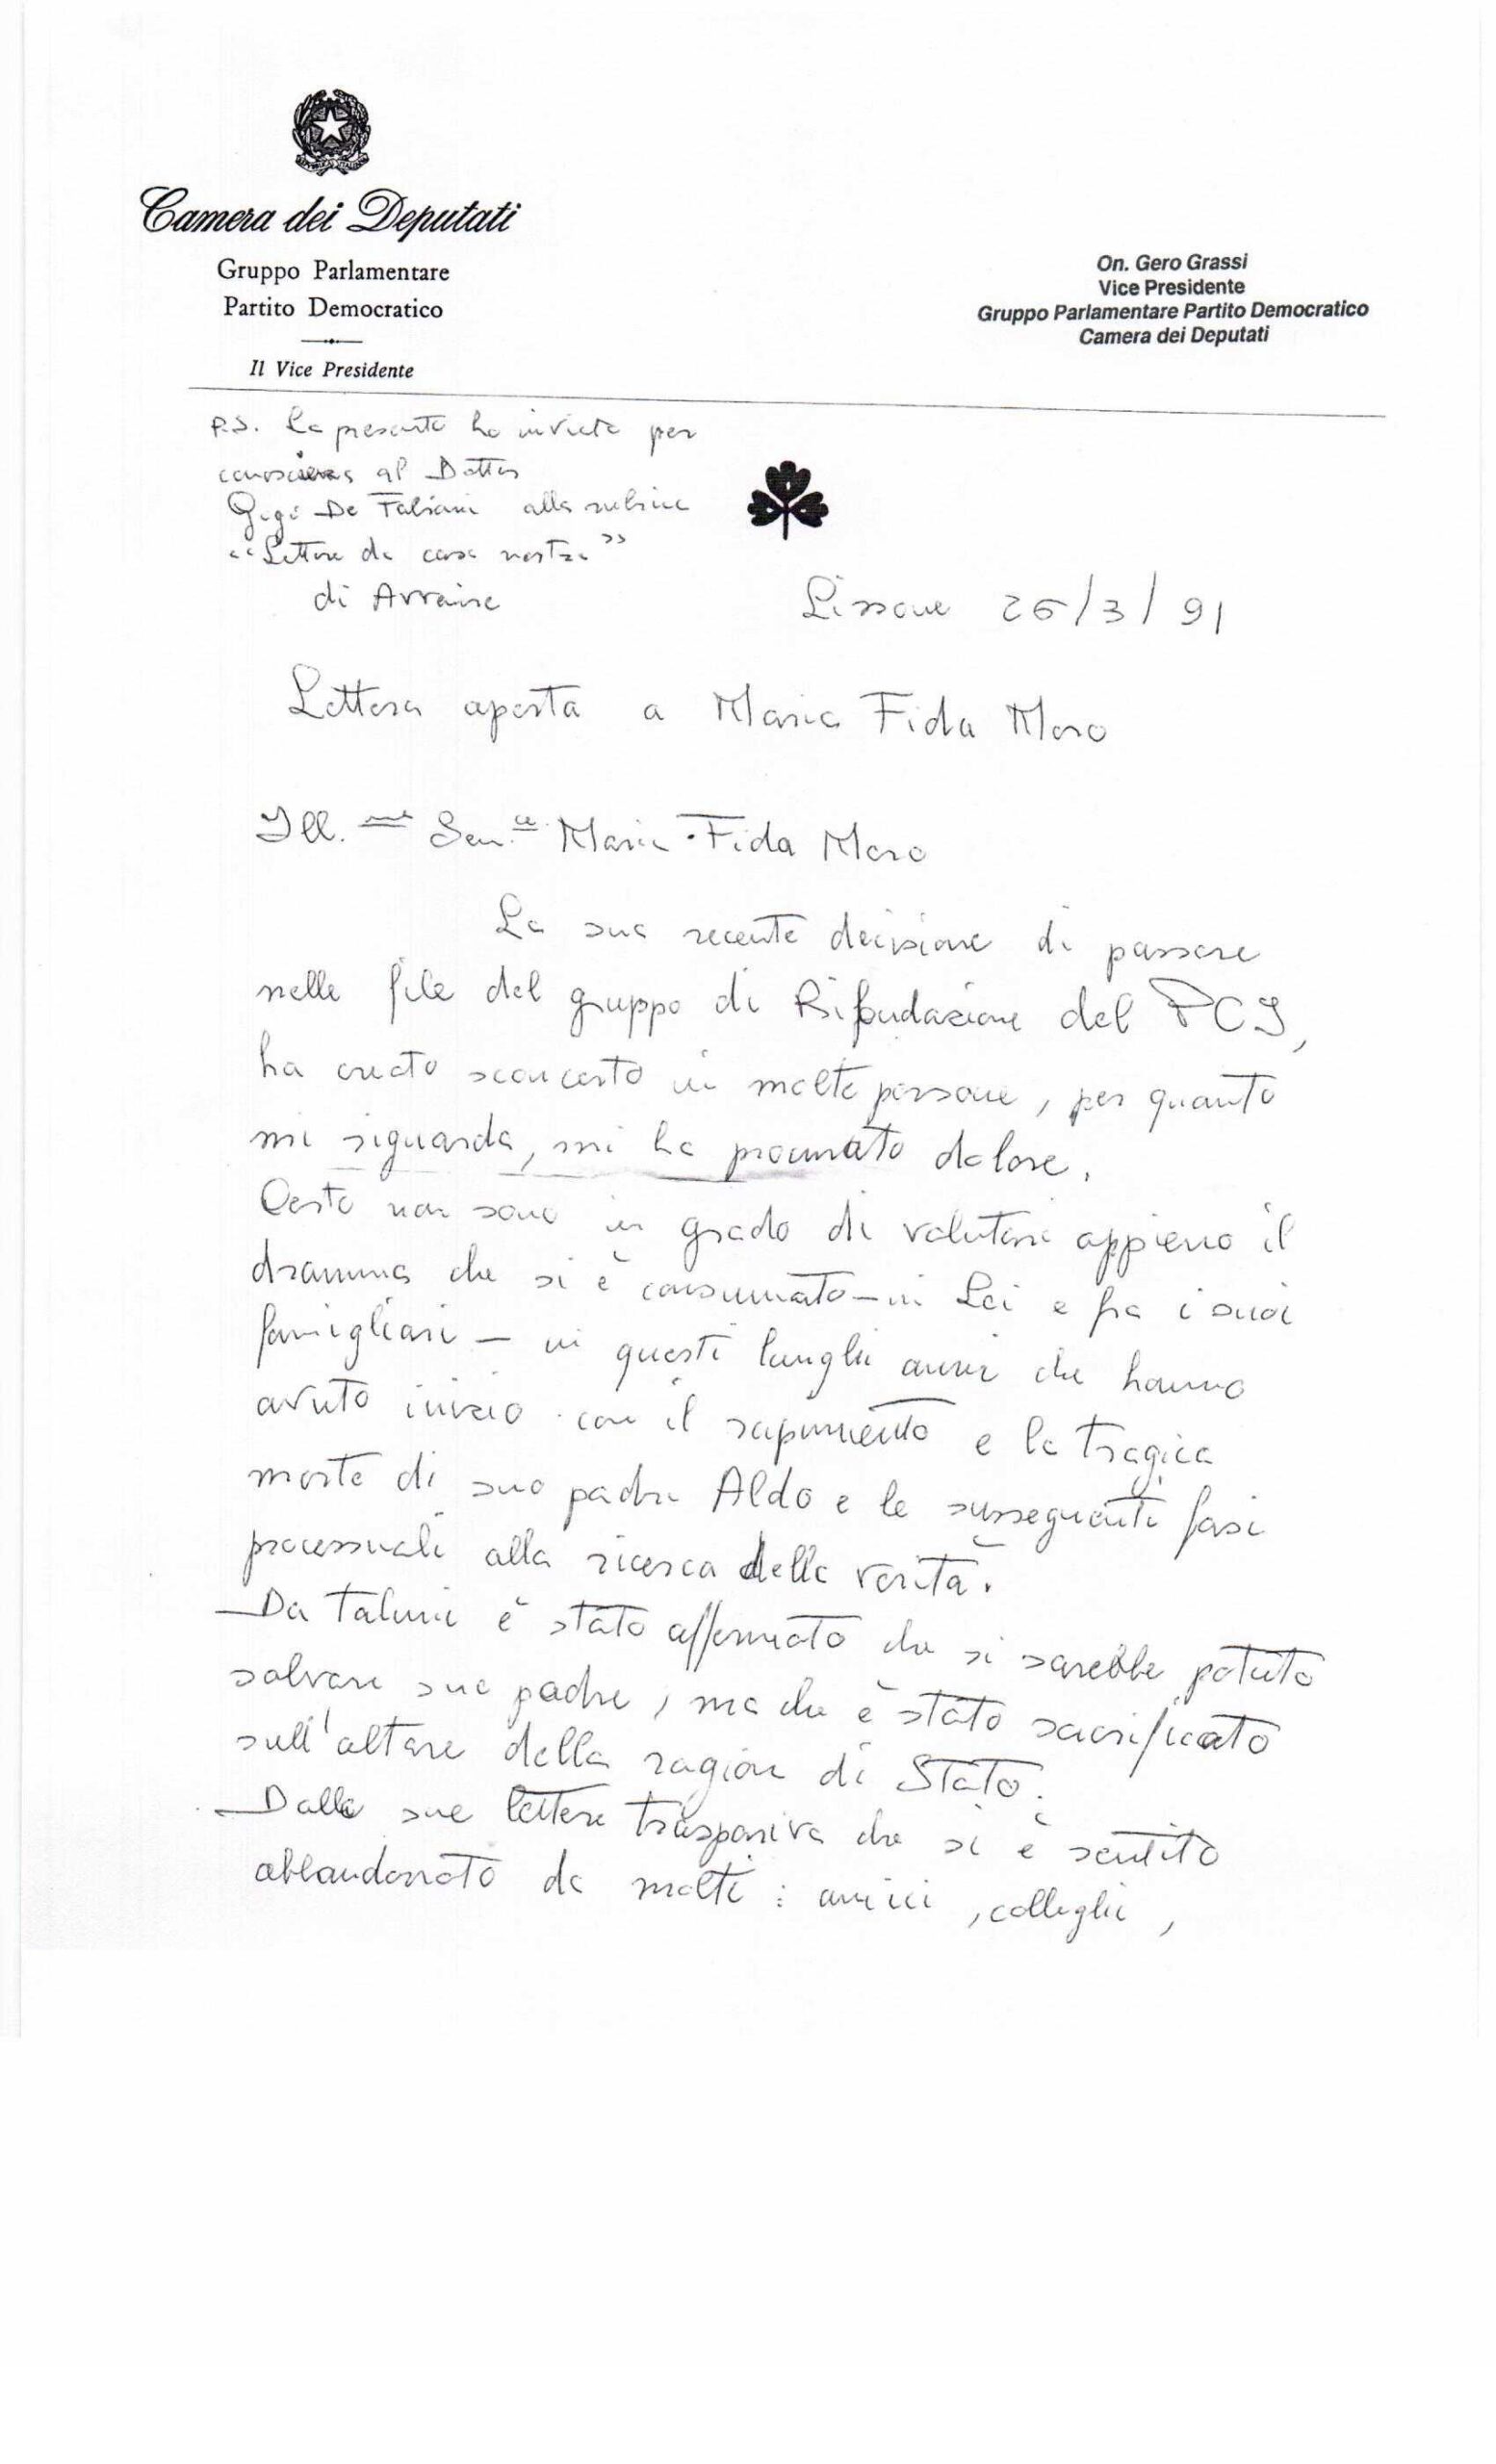 Camera dei Deputati
Gruppo Parlamentare
Partito Democratico
Il Vice Presidente
On. Gero Grassi
Vice Presidente
Gruppo Parlamentare Partito Democratico
Camera dei Deputati
P.S. La presente ho inviata per
conoscienza al Dottor
Gigi De Fabiani alla rubrica
“Lettere da casa nostra”
di Avvenire
Lissone 26/3/91
Lettera aperta a Maria Fida Moro
Ill.ma Sen.ce Maria Fida Moro
La sua recente decisione di passare
nelle file del gruppo di Rifondazione del PCI,
ha creato sconcerto in molte persone, per quanto
mi riguarda, mi ha procurato dolore.
Certo non sono in grado di valutare appieno il
dramma che si è consumato - in Lei e fra i suoi
famigliari - in questi lunghi anni che hanno
avuto inizio con il rapimento e la tragica
morte di suo padre Aldo e le susseguenti fasi
processuali alla ricerca della verità.
Da taluni è stato affermato che si sarebbe potuto
salvare suo padre, ma che è stato sacrificato
sull'altare della ragion di Stato.
Dalle sue lettere traspariva che si è sentito
abbandonato da molti: amici, colleghi,